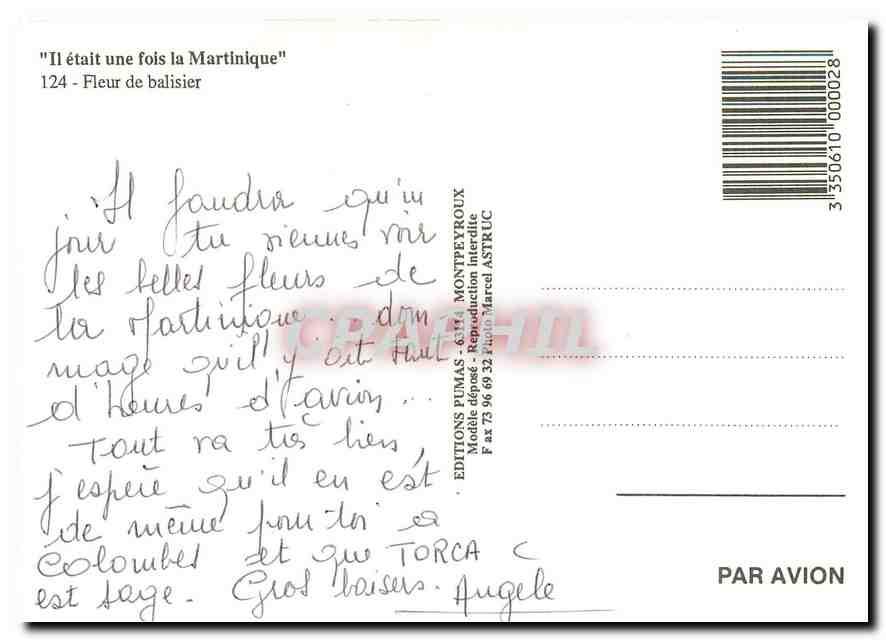 "Il était une fois la Martinique"
124 - Fleur de balisier
3 350610 000028
Il faudra qu'un
jour tu viennes voir
les belles fleurs de
la Martinique... dom-
mage qu'il y ait tant
d'heures d'avion...
Tout va très bien,
j'espère qu'il en est
de même pour toi à
Colombes et que TORCA
est sage. Gros baisers.
Angele
EDITIONS PUMAS - 63114 MONTPEYROUX
Modèle déposé - Reproduction interdite
Fax 73 96 69 32 Photo Marcel ASTRUC
CPAPHIL
PAR AVION